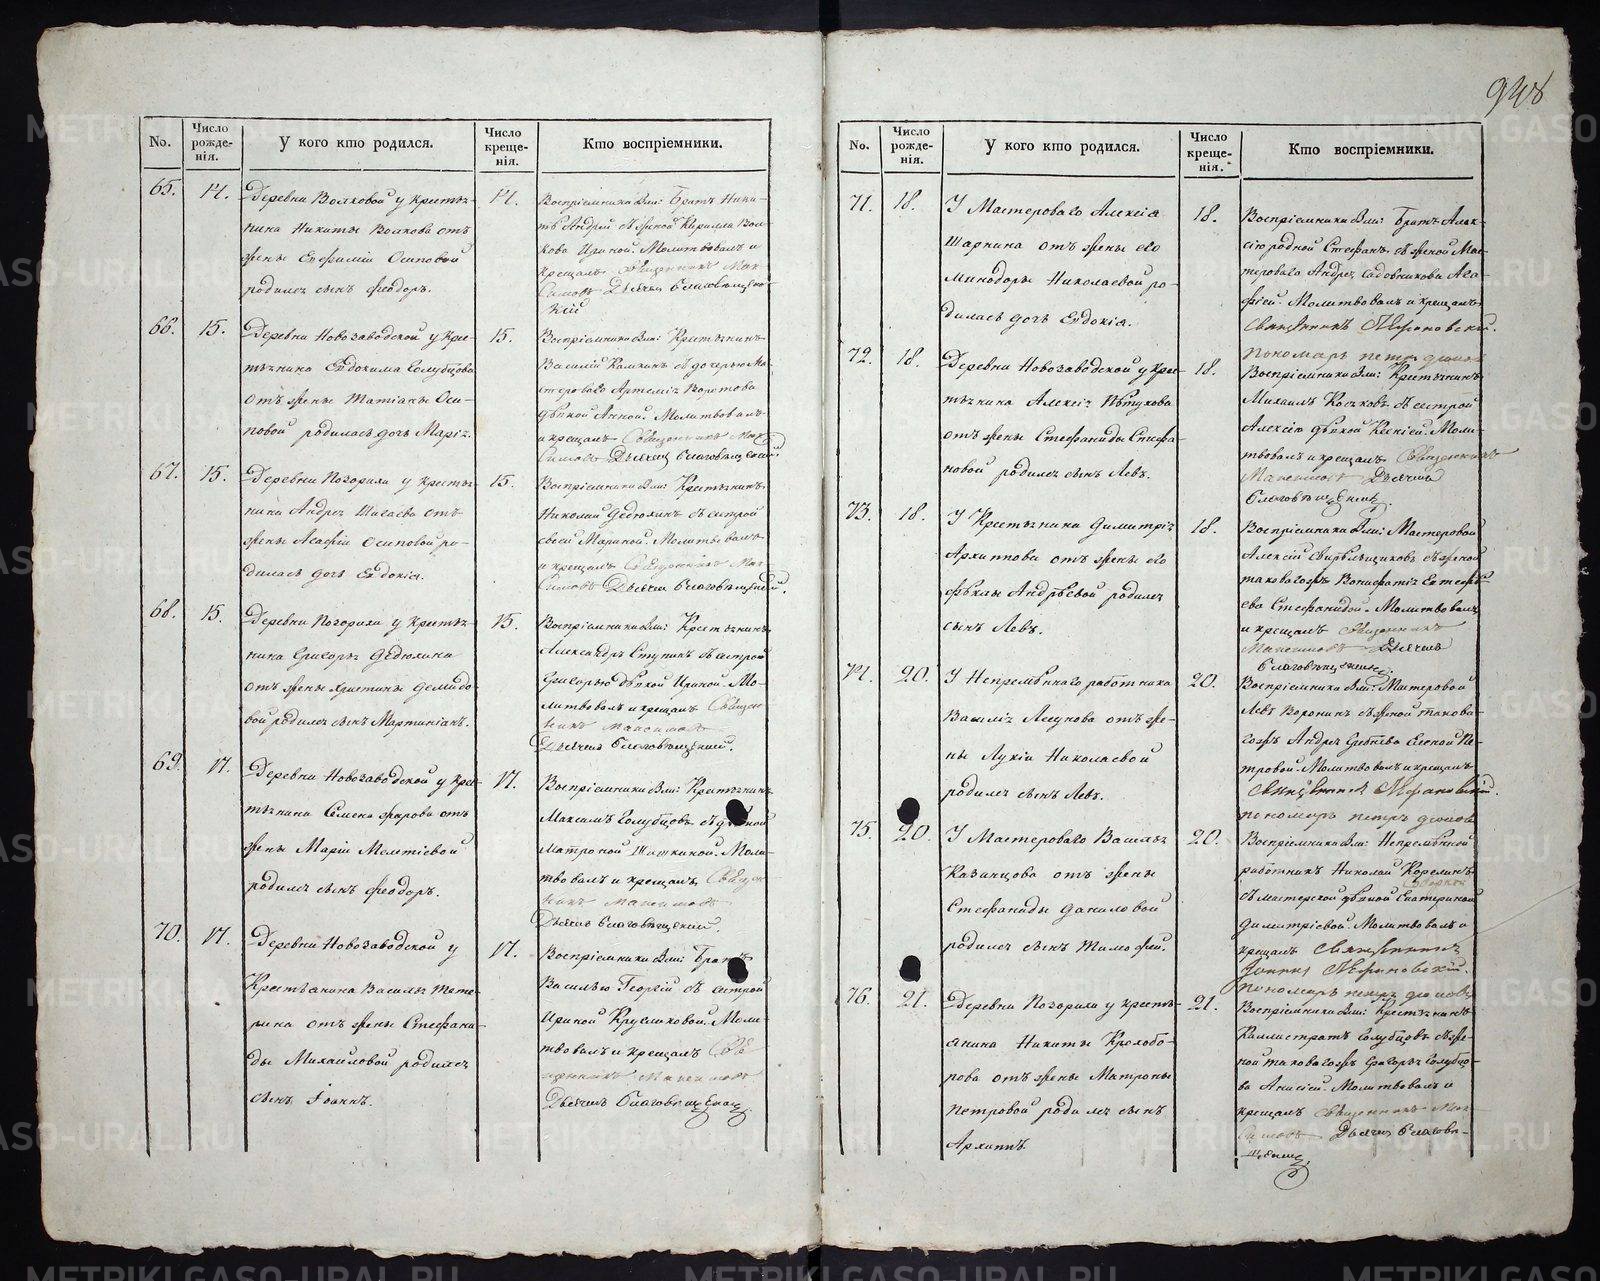 948
No.
Число рожде-нія.
У кого кто родился.
Число креще-нія.
Кто воспріемники.
65.
14.
Деревни Волковой у крестья-
нина Никиты Волкова отъ
жены Евфиміи Осиповой
родился сынъ Феодоръ.
14.
Воспріемники были: Братъ Ники-
ты Андрей съ женой Кирилла Вол-
кова Ириной. Молитвовалъ и
крещалъ Священникъ Мак-
симовъ Дьячекъ Благовѣщен-
скій
66.
15.
Деревни Новозаводской у кре-
стьянина Евдокима Голубцова
отъ жены Татіаны Оси-
повой родилась дочь Марія.
15.
Воспріемники были: Крестьянинъ
Василій съ дочерью Ма-
стероваго Артемія Воротова
дѣвкой Анной. Молитвовалъ
и крещалъ Священникъ Мак-
симовъ Дьячекъ Благовѣщенскій.
67.
15.
Деревни Позарихи у крестья-
нина Андрея отъ
жены Агафіи Осиповой ро-
дилась дочь Евдокія.
15.
Воспріемники были: Крестьянинъ
Николай Дедюхинъ съ сестрой
своей Мариной. Молитвовалъ
и крещалъ Священникъ Мак-
симовъ Дьячекъ Благовѣщенскій.
68.
15.
Деревни Позарихи у крестья-
нина Григорья Дедюхина
отъ жены Христины Демидо-
вой родился сынъ Мартиніанъ.
15.
Воспріемники были: Крестьянинъ
Александръ Ступинъ съ сестрой
Григорью дѣвкой Ириной. Мо-
литвовалъ и крещалъ Священ-
никъ Максимовъ
Дьячекъ Благовѣщенскій.
69.
17.
Деревни Новозаводской у кре-
стьянина Семена отъ
жены Маріи Мелетіевой
родился сынъ Феодоръ.
17.
Воспріемники были: Крестьянинъ
Максимъ Голубцовъ съ дѣвкой
Матроной. Моли-
твовалъ и крещалъ Священ-
никъ Максимовъ
Дьячекъ Благовѣщенскій.
70.
17.
Деревни Новозаводской у
Крестьянина Василья Тете-
рина отъ жены Стефани-
ды Михайловой родился
сынъ Іоаннъ.
17.
Воспріемники были: Братъ
Василью Георгій съ сестрой
Ириной Кругликовой. Моли-
твовалъ и крещалъ Свя-
щенникъ Максимовъ
Дьячекъ Благовѣщенскій
No.
Число рожде-нія.
У кого кто родился.
Число креще-нія.
Кто воспріемники.
71.
18.
У Мастероваго Алексія
Шаркина отъ жены его
Минодоры Николаевой ро-
дилась дочь Евдокія.
18.
Воспріемники были: Братъ Алек-
сію родной Стефанъ съ женой Мас-
тероваго Андрея Садовникова Ага-
фіей. Молитвовалъ и крещалъ
Священникъ
Пономарь Петръ
72.
18.
Деревни Новозаводской у кре-
стьянина Алексія Пѣтухова
отъ жены Стефаниды Стефа-
новой родился сынъ Левъ.
18.
Воспріемники были: Крестьянинъ
Михаилъ Косковъ съ сестрой
Алексію дѣвкой Ксеніей. Моли-
твовалъ и крещалъ Священникъ
Максимовъ Дьячекъ
Благовѣщенскій
73.
18.
У Крестьянина Димитрія
Архипова отъ жены его
Ѳеклы Андрѣевой родился
сынъ Левъ.
18.
Воспріемники были: Мастеровой
Алексій Свирѣльщиковъ съ женой
таковагожъ Вонифатія Евтефѣ-
ева Стефанидой. Молитвовалъ
и крещалъ Священникъ
Максимовъ Дьячекъ
Благовѣщенскій
74.
20.
У Непремѣннаго работника
Василія отъ же-
ны Лукіи Николаевой
родился сынъ Левъ.
20.
Воспріемники были: Мастеровой
Левъ Воронинъ съ женой такова-
гожъ Андрея Гребнева Еленой Пе-
тровой. Молитвовалъ и крещалъ
Священникъ
пономарь Петръ
75.
20.
У Мастероваго Василья
Казанцова отъ жены
Стефаниды Даниловой
родился сынъ Тимофей.
20.
Воспріемники были: Непремѣнной
работникъ Николай Корелинъ
съ мастерской дѣвкой Екатериной
Димитріевой. Молитвовалъ и
крещалъ Священникъ
Іоаннъ
Пономарь Петръ
76.
21.
Деревни Позарихи у кресть-
янина Никиты Кролобо-
рова отъ жены Матроны
Петровой родился сынъ
Архиппъ.
21.
Воспріемники были: Крестьянинъ
Каллистратъ Голубцовъ съ же-
ной таковагожъ Григорья Голубцо-
ва Анисіей. Молитвовалъ и
крещалъ Священникъ Мак-
симовъ Дьячекъ Благовѣ-
щенскій